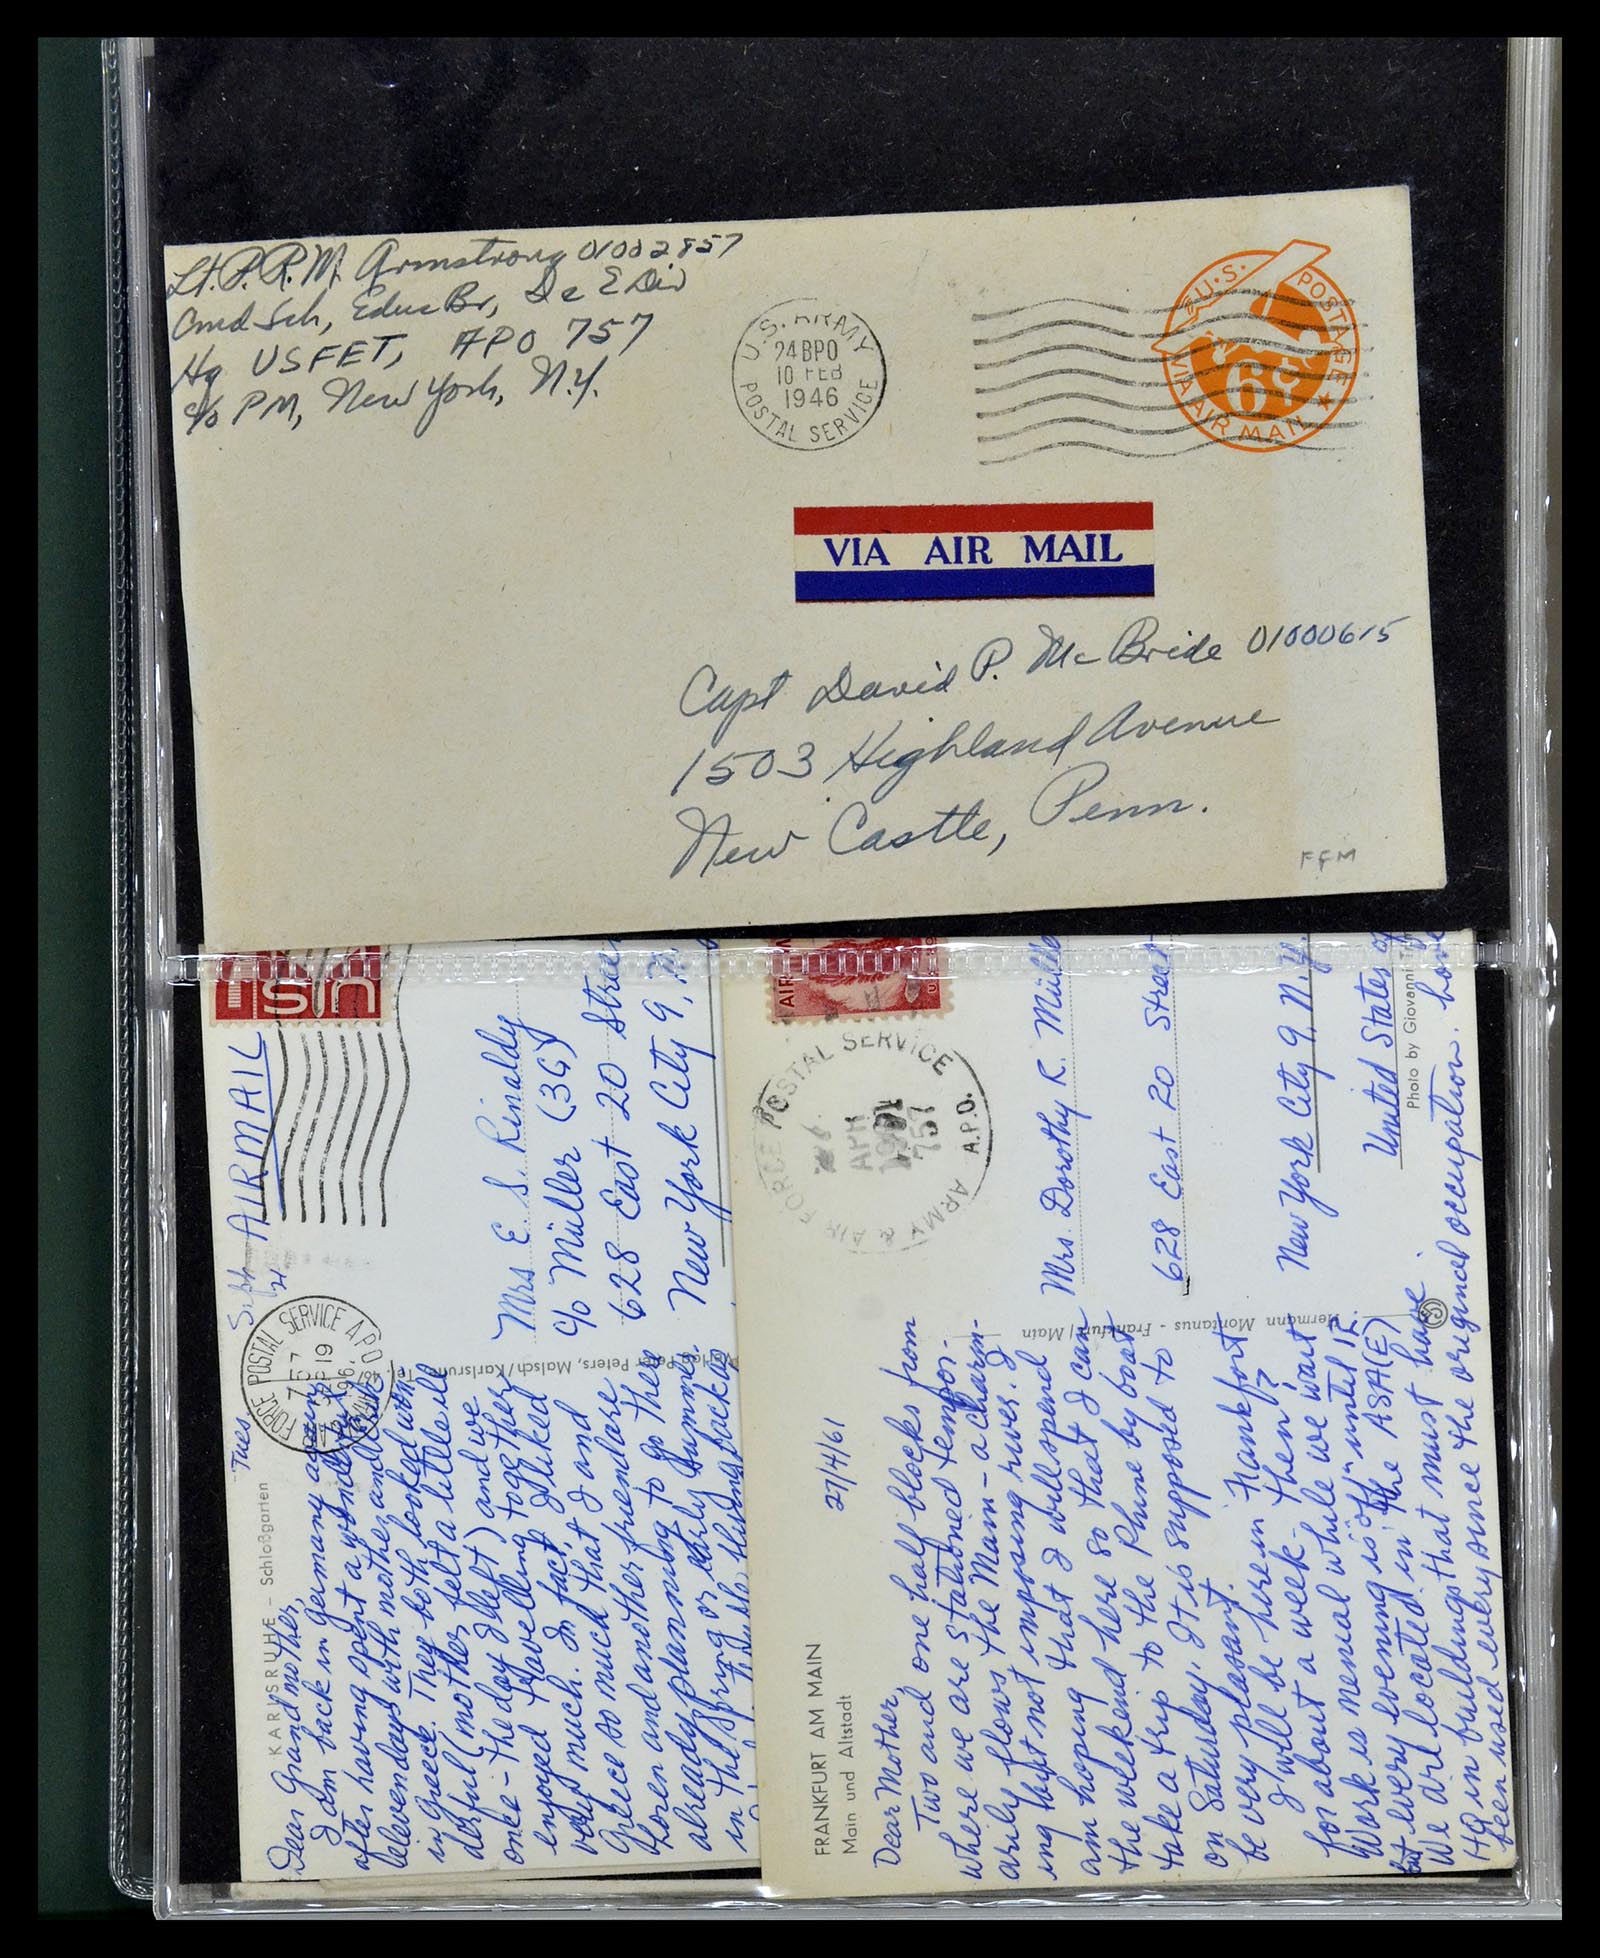 Lt. P. R. M. Armstrong 01002857
Cmd Sch, Educ Br, I & E Div
Hq USFET, APO 757
c/o PM, New York, N.Y.
U.S. ARMY
24BPO
10 FEB
1946
POSTAL SERVICE
U.S. POSTAGE
6¢
VIA AIR MAIL
VIA AIR MAIL
Capt David P. McBride 01000615
1503 Highland Avenue
New Castle, Penn.
FFM
US
AIRMAIL
Sept
21
FORCE POSTAL SERVICE A.P.O.
757
19
Mrs E. S. Rinaldy
c/o Müller (3G)
628 East 20 Street
New York City 9, N.Y.
Peters, Malsch/Karlsruhe
Tues
KARLSRUHE – Schloßgarten
Dear Grandmother,
I am back in Germany again
after having spent a wonderful
eleven days with mother and
in Greece. They both looked won-
derful (mother felt a little ill
one - the day I left) and we
enjoyed travelling together
very much. In fact, I liked
Greece so much that I and
Loren and another friend are
already planning to go there
in the spring or early summer.
AIR
POSTAL SERVICE
APR
757
A.P.O.
ARMY & AIR FORCE
Mrs. Dorothy R. Müller
628 East 20 Street
New York City 9, N.Y.
United States of
Photo by Giovanni
Hermann Montanus - Frankfurt/Main
FRANKFURT AM MAIN
Main und Altstadt
27/4/61
Dear Mother,
Two and one half blocks from
where we are stationed tempor-
arily flows the Main - a charm-
ing but not imposing river. I
am hoping that I will spend
the weekend here so that I can
take a trip to the Rhine by boat
on Saturday. It is supposed to
be very pleasant.
I will be here in Frankfort
for about a week - then?
Work is menial while we wait
but every evening is "off" until 12.
We are located in the ASA(E)
HQ in buildings that must have
been used every since the original occupation. Love